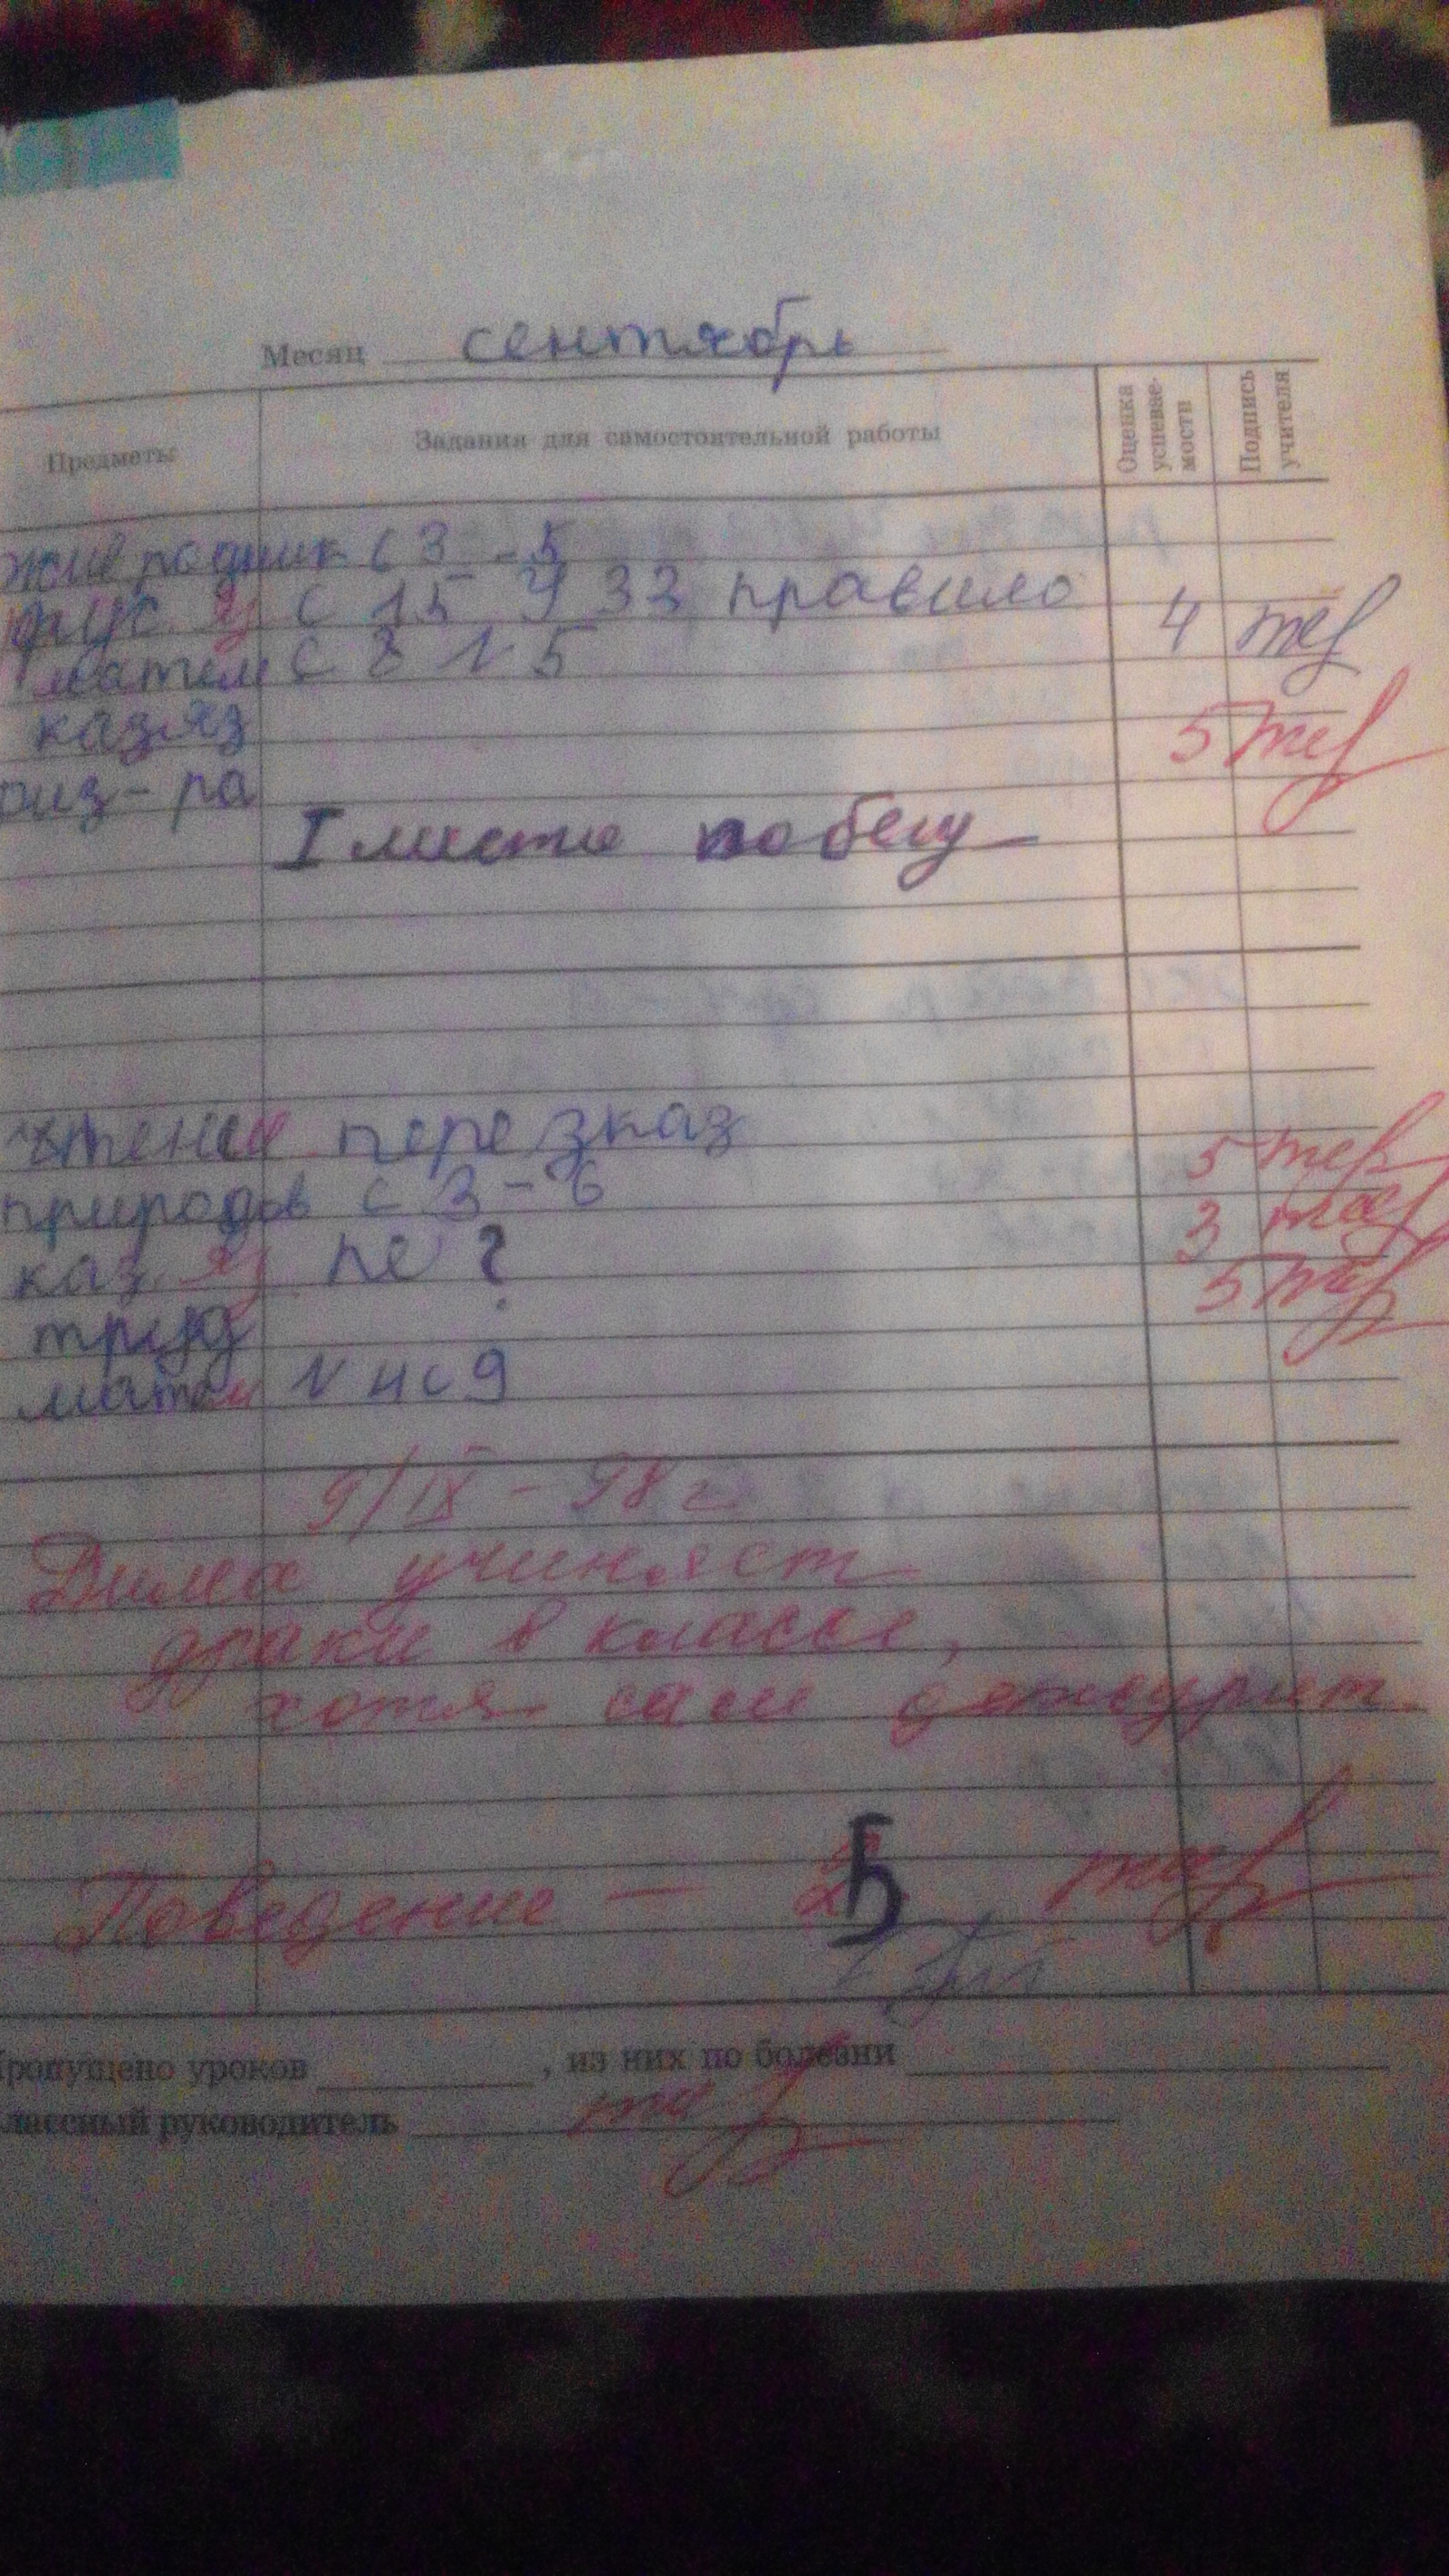 Месяц сентябрь
Предметы Задания для самостоятельной работы Оценка успевае-мости Подпись учителя
жив родник с 3 - 5
рус. яз с 15 У 33 правило 4
матем с 8 N 5
каз яз 5
физ-ра
I место по бегу
чтение перезказ 5
природов с 3 - 6 3
каз. яз по ? 5
труд
матем N 4 с 9
9/IX - 98 г
Дима учиняет
драки в классе,
хотя сам дежурит.
Поведение - 5
Пропущено уроков , из них по болезни
классный руководитель